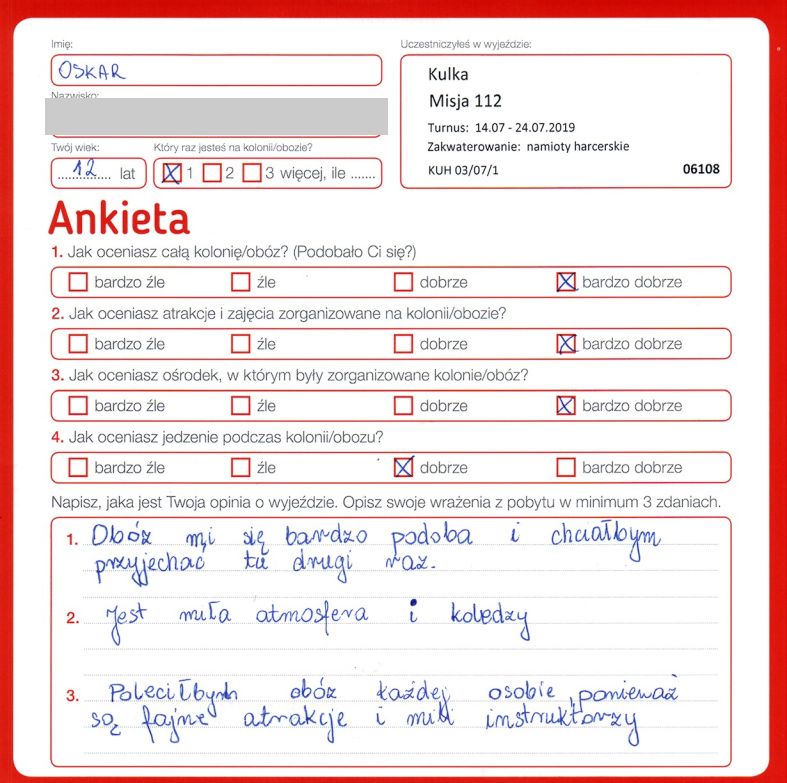 Imię:
Uczestniczyłeś w wyjeździe:
OSKAR
Kulka
Misja 112
Nazwisko:
Turnus: 14.07 - 24.07.2019
Zakwaterowanie: namioty harcerskie
KUH 03/07/1 06108
Twój wiek:
Który raz jesteś na kolonii/obozie?
12 lat
1 2 3 więcej, ile .......
Ankieta
1. Jak oceniasz całą kolonię/obóz? (Podobało Ci się?)
bardzo źle źle dobrze bardzo dobrze
2. Jak oceniasz atrakcje i zajęcia zorganizowane na kolonii/obozie?
bardzo źle źle dobrze bardzo dobrze
3. Jak oceniasz ośrodek, w którym były zorganizowane kolonie/obóz?
bardzo źle źle dobrze bardzo dobrze
4. Jak oceniasz jedzenie podczas kolonii/obozu?
bardzo źle źle dobrze bardzo dobrze
Napisz, jaka jest Twoja opinia o wyjeździe. Opisz swoje wrażenia z pobytu w minimum 3 zdaniach.
1. Obóz mi się bardzo podoba i chciałbym
przyjechać tu drugi raz.
2. Jest miła atmosfera i koledzy
3. Poleciłbym obóz każdej osobie, ponieważ
są fajne atrakcje i mili instruktorzy